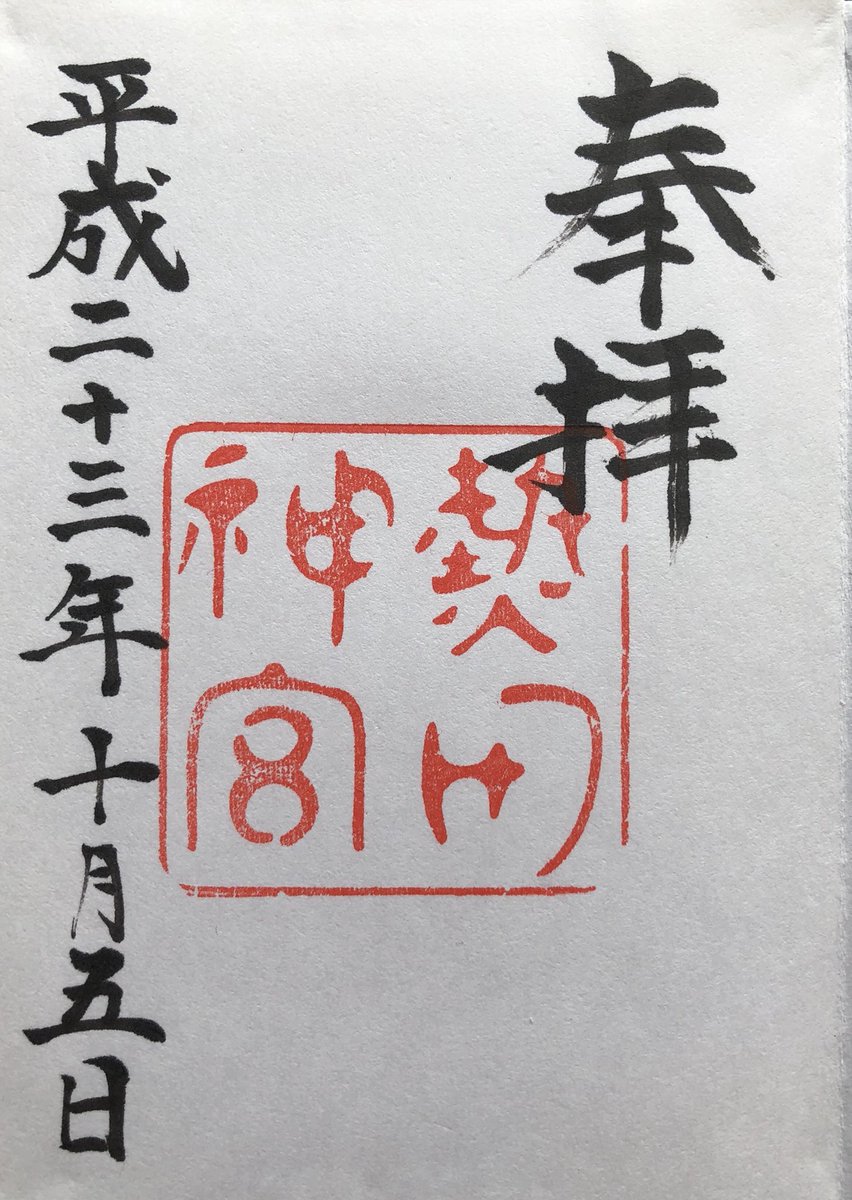 奉拝
熱田
神宮
平成二十三年十月五日